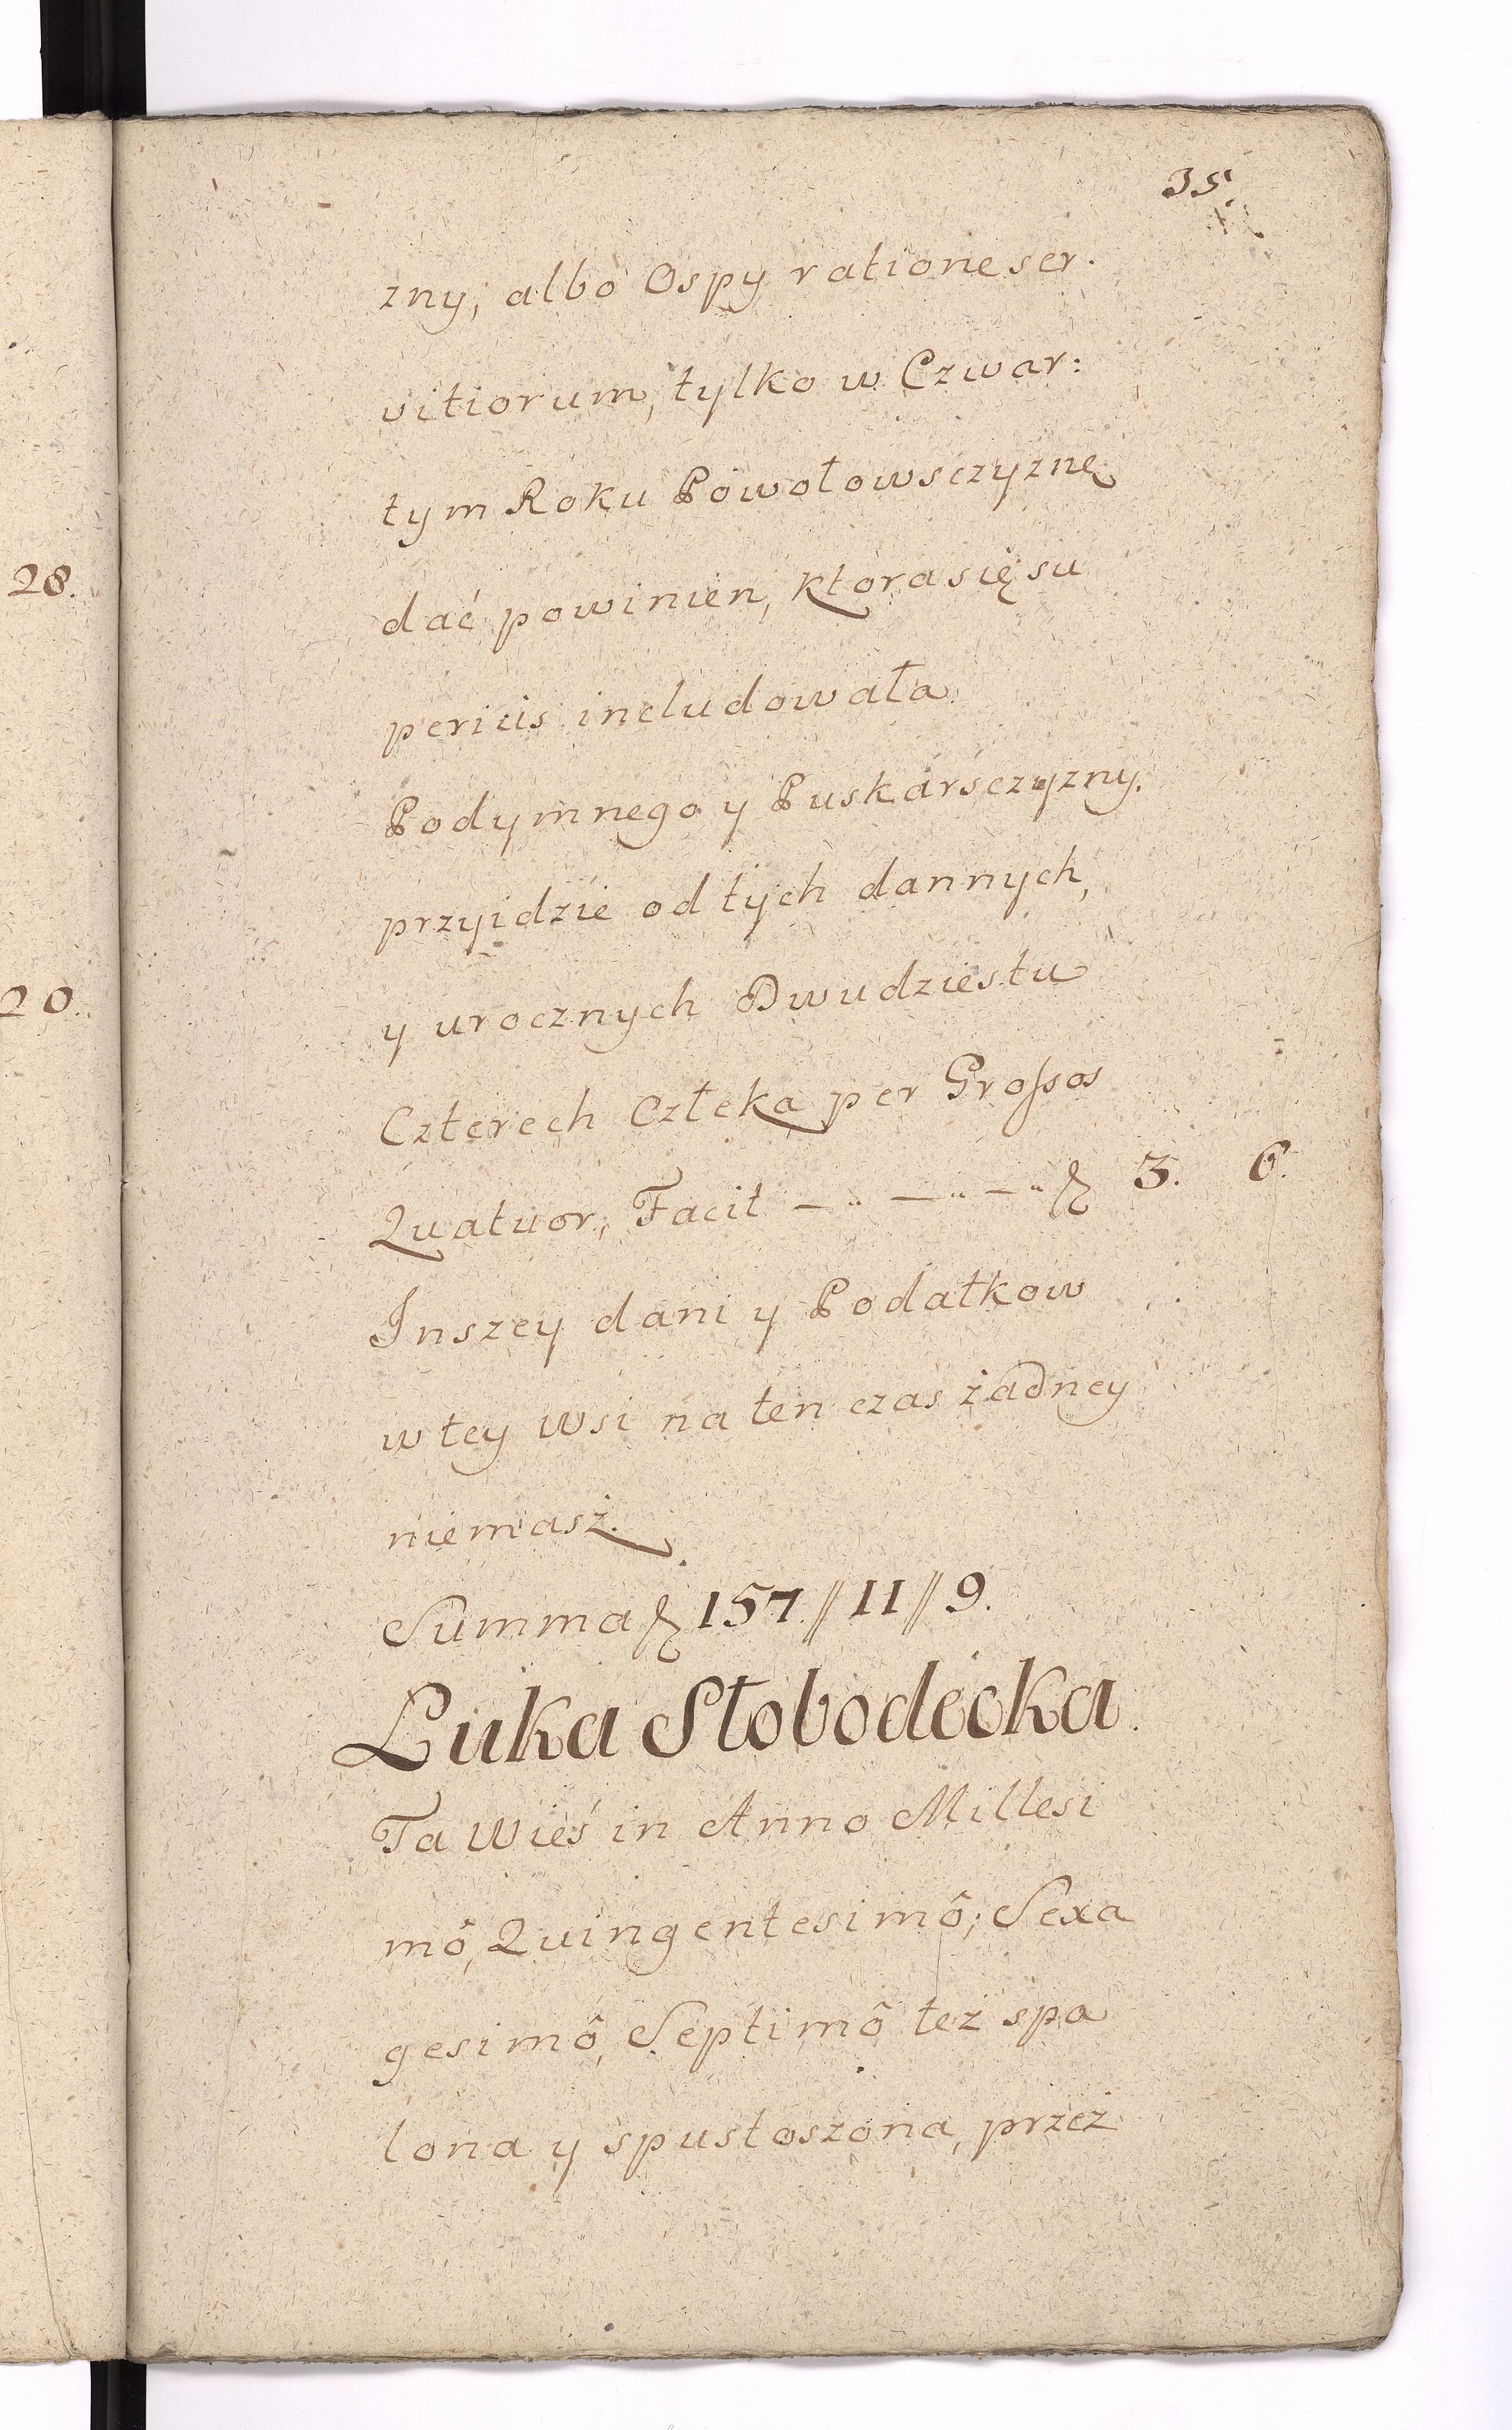 28.
20.
35.
zny, albo Ospy ratione ser.
vitiorum, tylko w Czwar:
tym Roku Powołowsczyznę
dać powinien, ktora się su
perius includowała
Podymnego y Puskarsczyzny.
przyidzie od tych dannych,
y urocznych Dwudziestu
Czterech Człeka per Grossos
Quatuor, Facit — " — " — " 3. 6.
Inszey dani y Podatkow
w tey wsi na ten czas żadney
niemasz.
Summa 157 // 11 // 9.
Luka Słobodecka.
Ta Wieś in Anno Millesi
mô, Quingentesimô, Sexa
gesimô, Septimô też spa
lona y spustoszona, przez